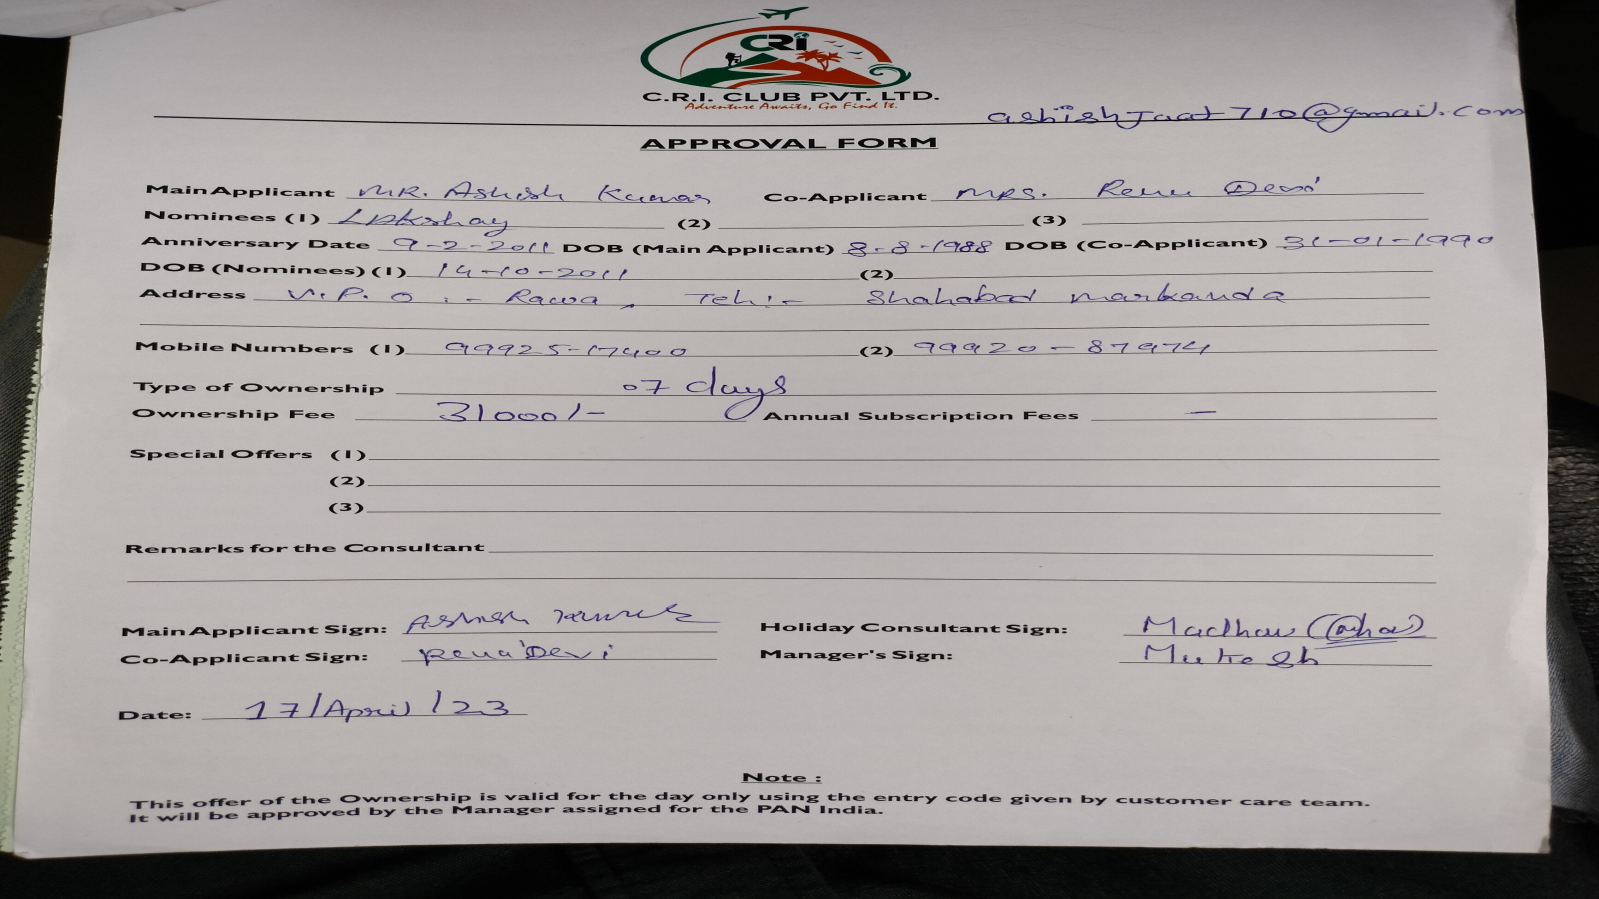 CRi
C.R.I. CLUB PVT. LTD.
Adventure Awaits, Go Find It.
ashishJaat710@gmail.com
APPROVAL FORM
Main Applicant MR. Ashish Kumar Co-Applicant MRS. Renu Devi
Nominees (1) Lakshay (2) (3)
Anniversary Date 9-2-2011 DOB (Main Applicant) 8-8-1988 DOB (Co-Applicant) 31-01-1990
DOB (Nominees) (1) 14-10-2011 (2)
Address V.P.O :- Rawa, Teh:- Shahabad markanda
Mobile Numbers (1) 99925-17400 (2) 99920-87974
Type of Ownership 07 days
Ownership Fee 31000/- Annual Subscription Fees —
Special Offers (1)
(2)
(3)
Remarks for the Consultant
Main Applicant Sign: Ashish Holiday Consultant Sign: Madhav
Co-Applicant Sign: Renu Devi Manager's Sign: Mukesh
Date: 17/April/23
Note :
This offer of the Ownership is valid for the day only using the entry code given by customer care team.
It will be approved by the Manager assigned for the PAN India.